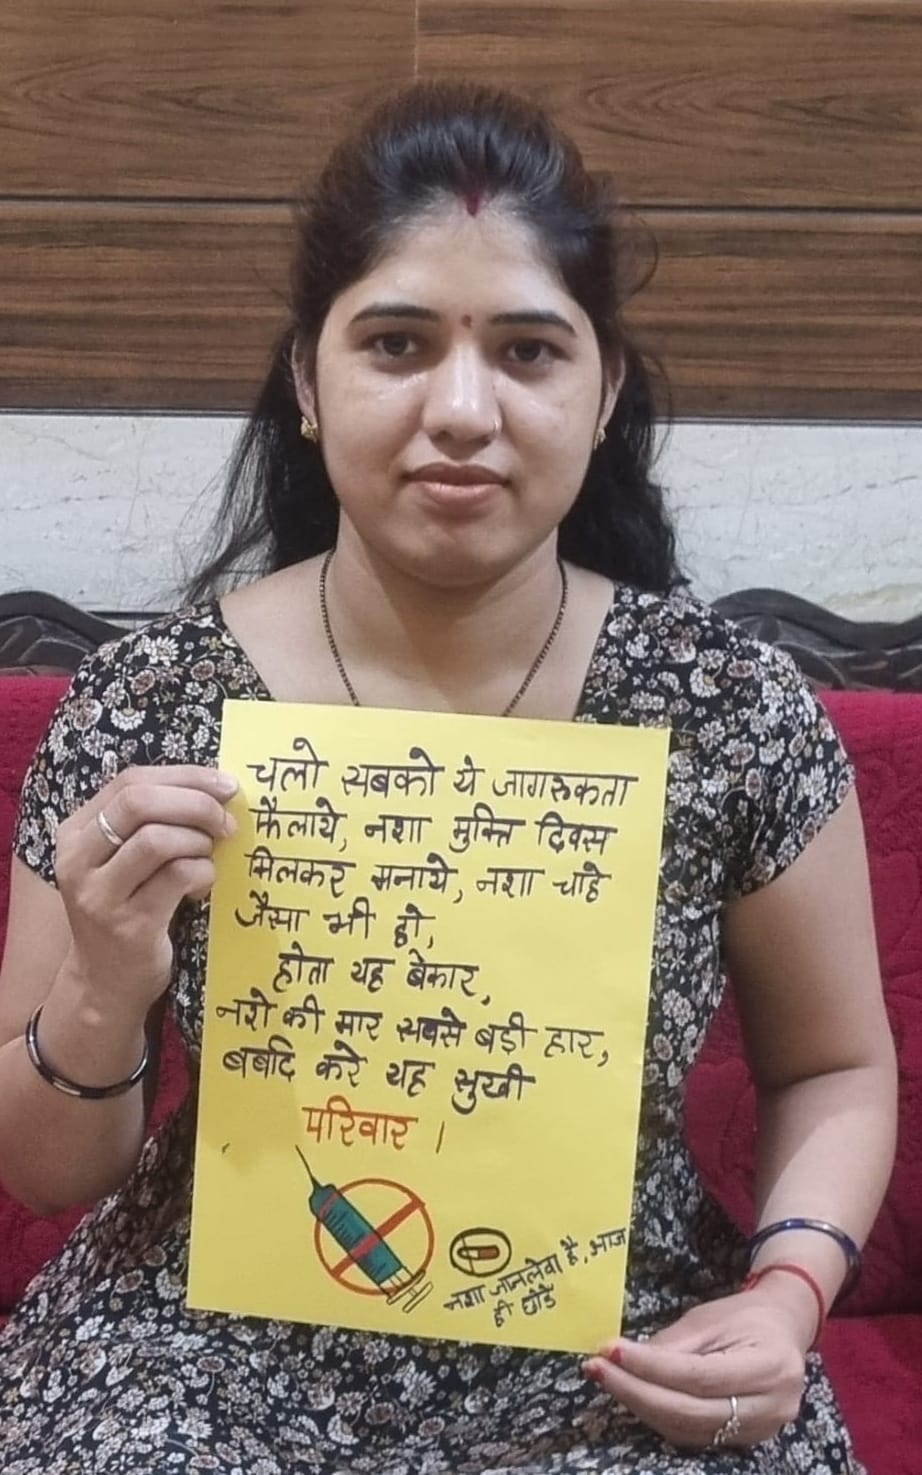 चलो सबको ये जागरुकता
फैलाये, नशा मुक्ति दिवस
मिलकर मनाये, नशा चाहे
जैसा भी हो,
होता यह बेकार,
नशे की मार सबसे बड़ी हार,
बर्बाद करे यह सुखी
परिवार ।
नशा जानलेवा है, आज
ही छोडे